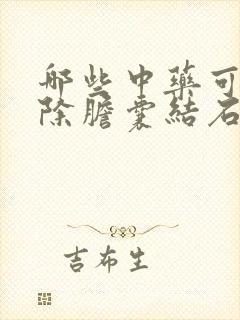 哪些中藥可
除膽囊結石
吉布生